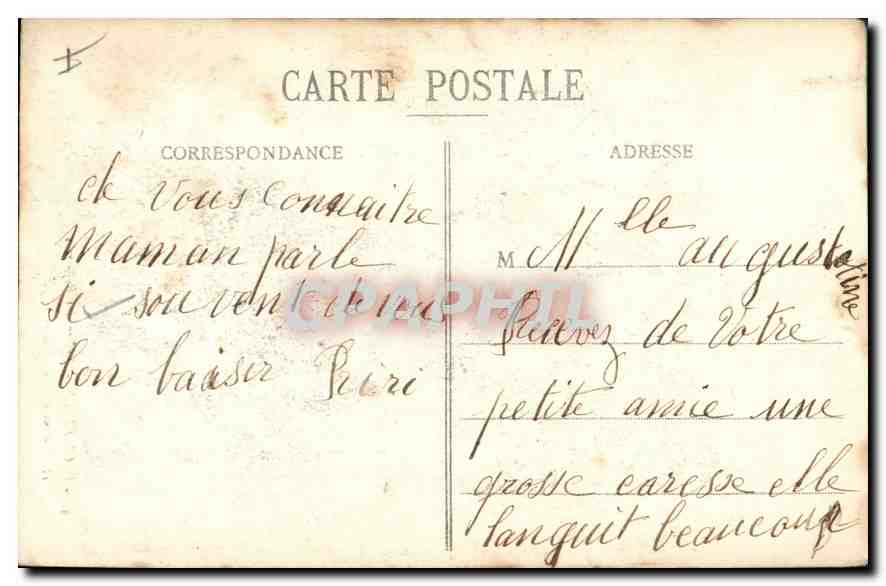 CARTE POSTALE
CORRESPONDANCE
ADRESSE
M Mlle augustatine
Recevez de Votre
petite amie une
grosse caresse elle
languit beaucoup
de Vous Connaitre
Maman parle
si souvent de vous
bon baiser Riri
CPAPHIL